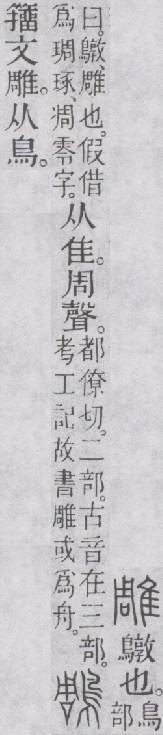 雕鷻也。鳥部
曰。鷻、雕也。假借
爲琱琢、凋零字。
从隹。周聲。
都僚切。二部。古音在三部。
考工記故書雕或爲舟。
鵰
籒文雕。从鳥。